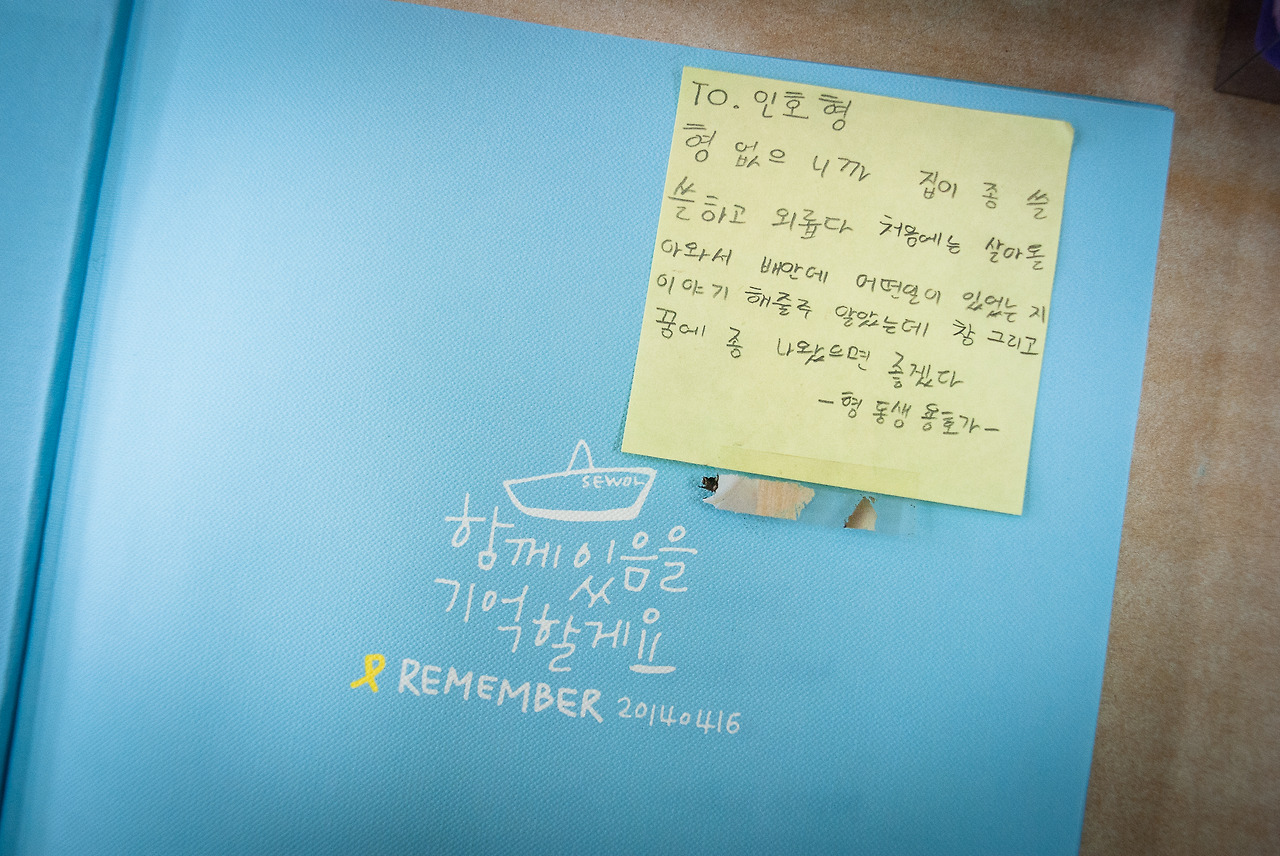 TO. 인호 형
형 없으 니까 집이 종 쓸
쓸하고 외롭다 처음에는 살아돌
아와서 배안에 어떤일이 있었는 지
이야기 해줄주 알았는데 참 그리고
꿈에 좀 나왔으면 좋겠다
-형 동생 용호가-
SEWOL
함께 있음을
기억할게요
REMEMBER 20140416